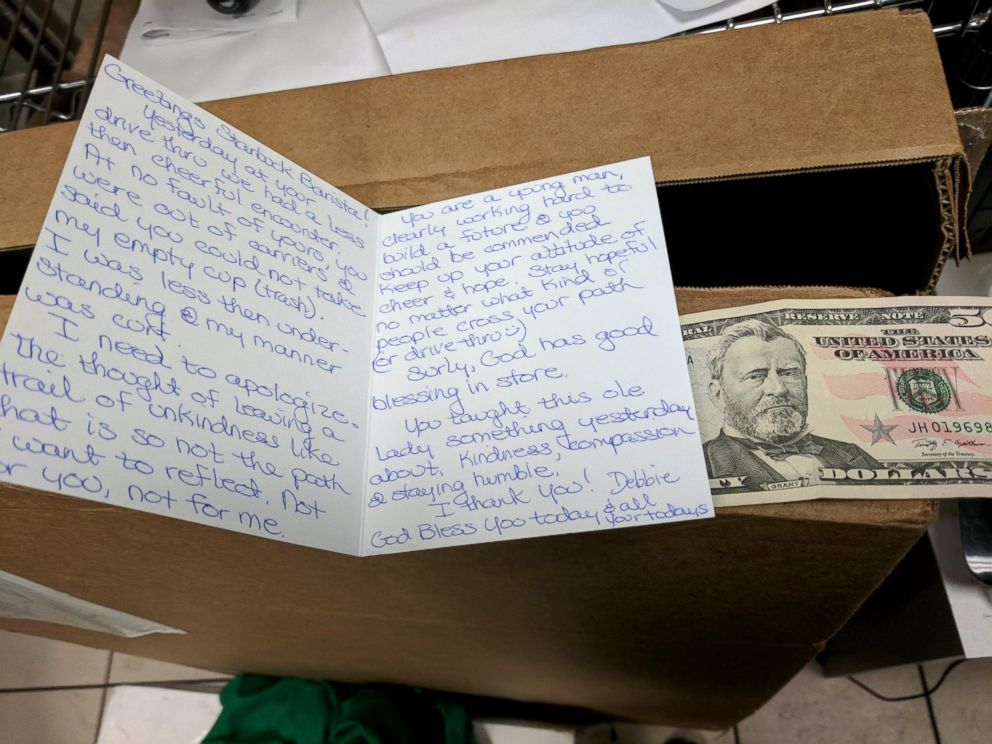 Greetings Starbuck Barista!
Yesterday at your
drive thru we had a less
then cheerful encounter.
At no fault of yours, you
were out of carriers &
said you could not take
my empty cup (trash).
I was less then under-
standing & my manner
was curt.
I need to apologize.
The thought of leaving a
trail of unkindness like
that is so not the path
I want to reflect. Not
for you, not for me.
You are a young man,
clearly working hard to
build a future & you
should be commended
Keep up your attitude of
cheer & hope. Stay hopeful
no matter what kind of
people cross your path
(er drive thru)
Surly, God has good
blessing in store.
You taught this ole
lady something yesterday
about, kindness, compassion
& staying humble.
I thank you! Debbie
God Bless you today & all
your todays
RESERVE NOTE 50
THE
UNITED STATES
OF AMERICA
JH 019698
Secretary of the Treasury.
GRANT
DOLLARS